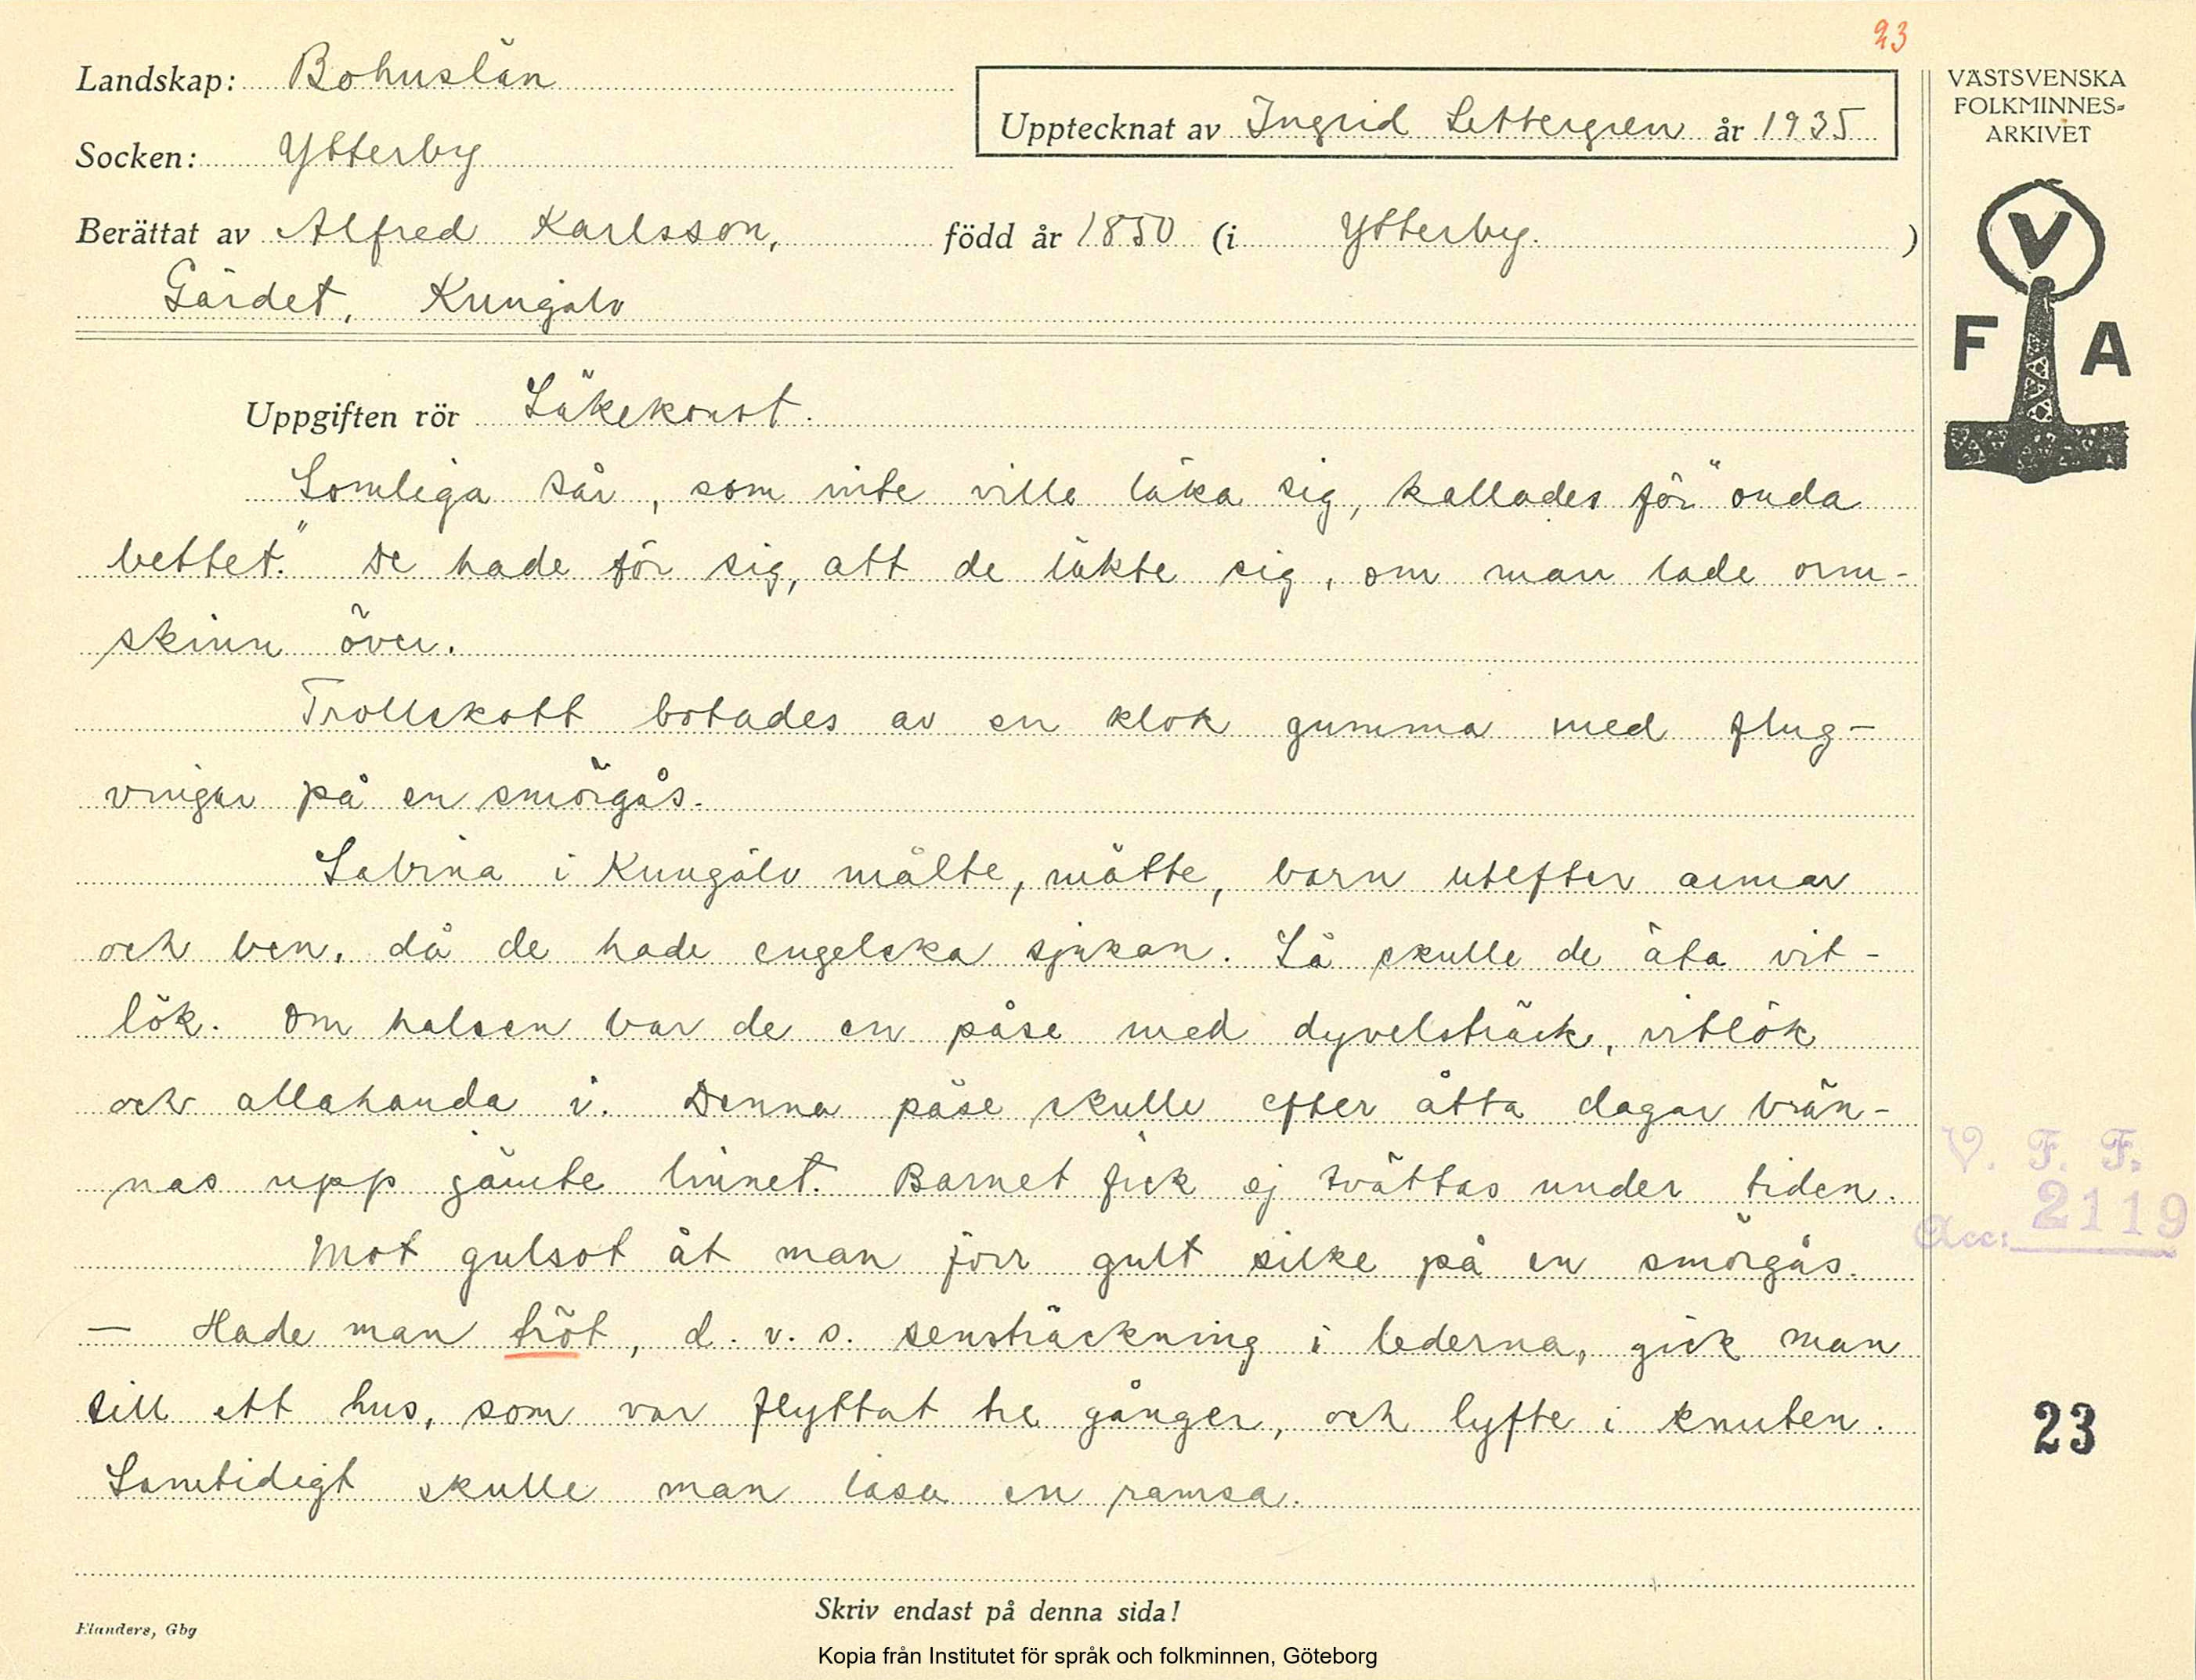 23
Landskap: Bohuslän
Upptecknat av Ingrid Settergren år 1935
Socken: Ytterby
Berättat av Alfred Karlsson, född år 1850 (i Ytterby. )
Gärdet, Kungälv
VÄSTSVENSKA
FOLKMINNES-
ARKIVET
V
F A
Uppgiften rör Läkekonst.
Somliga sår, som inte ville läka sig, kallades för "onda
bettet." De hade för sig, att de läkte sig, om man lade orm-
skinn över.
Trollskott botades av en klok gumma med flug-
vingar på en smörgås.
Sabina i Kungälv mälte, mätte, barn utefter armar
och ben, då de hade engelska sjukan. Så skulle de äta vit-
lök. Om halsen bar de en påse med dyvelsträck, vitlök
och allahanda i. Denna påse skulle efter åtta dagar brän-
nas upp jämte linnet. Barnet fick ej tvättas under tiden.
Mot gulsot åt man förr gult silke på en smörgås.
— Hade man tröt, d. v. s. sensträckning i lederna, gick man
till ett hus, som var flyttat tre gånger, och lyfte i knuten.
Samtidigt skulle man läsa en ramsa.
V. F. F.
Acc: 2119
23
Skriv endast på denna sida!
Elanders, Gbg
Kopia från Institutet för språk och folkminnen, Göteborg